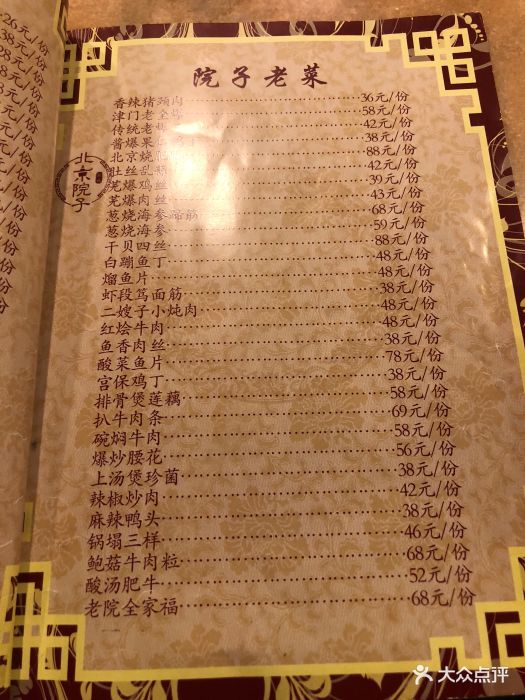 院子老菜
香辣猪颈肉 36元/份
津门老全 58元/份
传统老 42元/份
酱爆果 38元/份
北京烧 88元/份
肚丝乱 42元/份
芫爆鸡丝 39元/份
芫爆肉丝 43元/份
葱烧海参蹄筋 68元/份
葱烧海参 59元/份
干贝四丝 88元/份
白蹦鱼丁 48元/份
熘鱼片 48元/份
虾段笃面筋 38元/份
二嫂子小炖肉 48元/份
红烩牛肉 48元/份
鱼香肉丝 38元/份
酸菜鱼片 78元/份
宫保鸡丁 38元/份
排骨煲莲藕 58元/份
扒牛肉条 69元/份
碗焖牛肉 58元/份
爆炒腰花 56元/份
上汤煲珍菌 38元/份
辣椒炒肉 42元/份
麻辣鸭头 38元/份
锅塌三样 46元/份
鲍菇牛肉粒 68元/份
酸汤肥牛 52元/份
老院全家福 68元/份
北京院子
大众点评